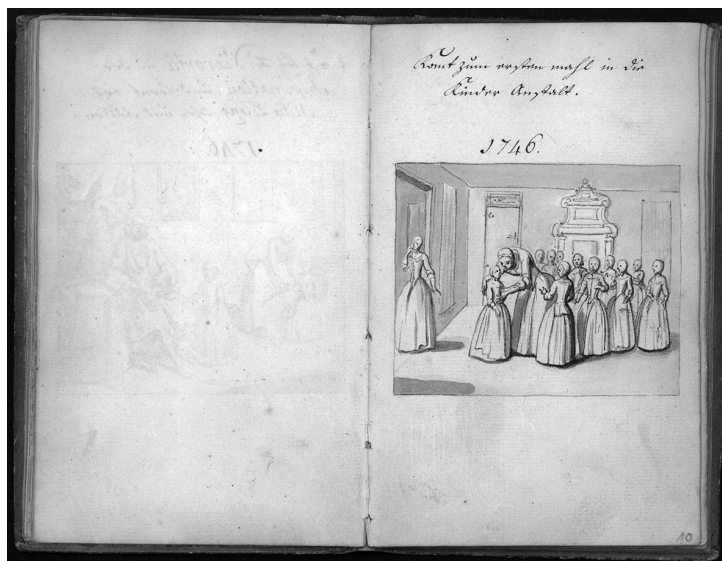 Komt zum ersten mahl in die
Kinder Anstalt.
1746.
10